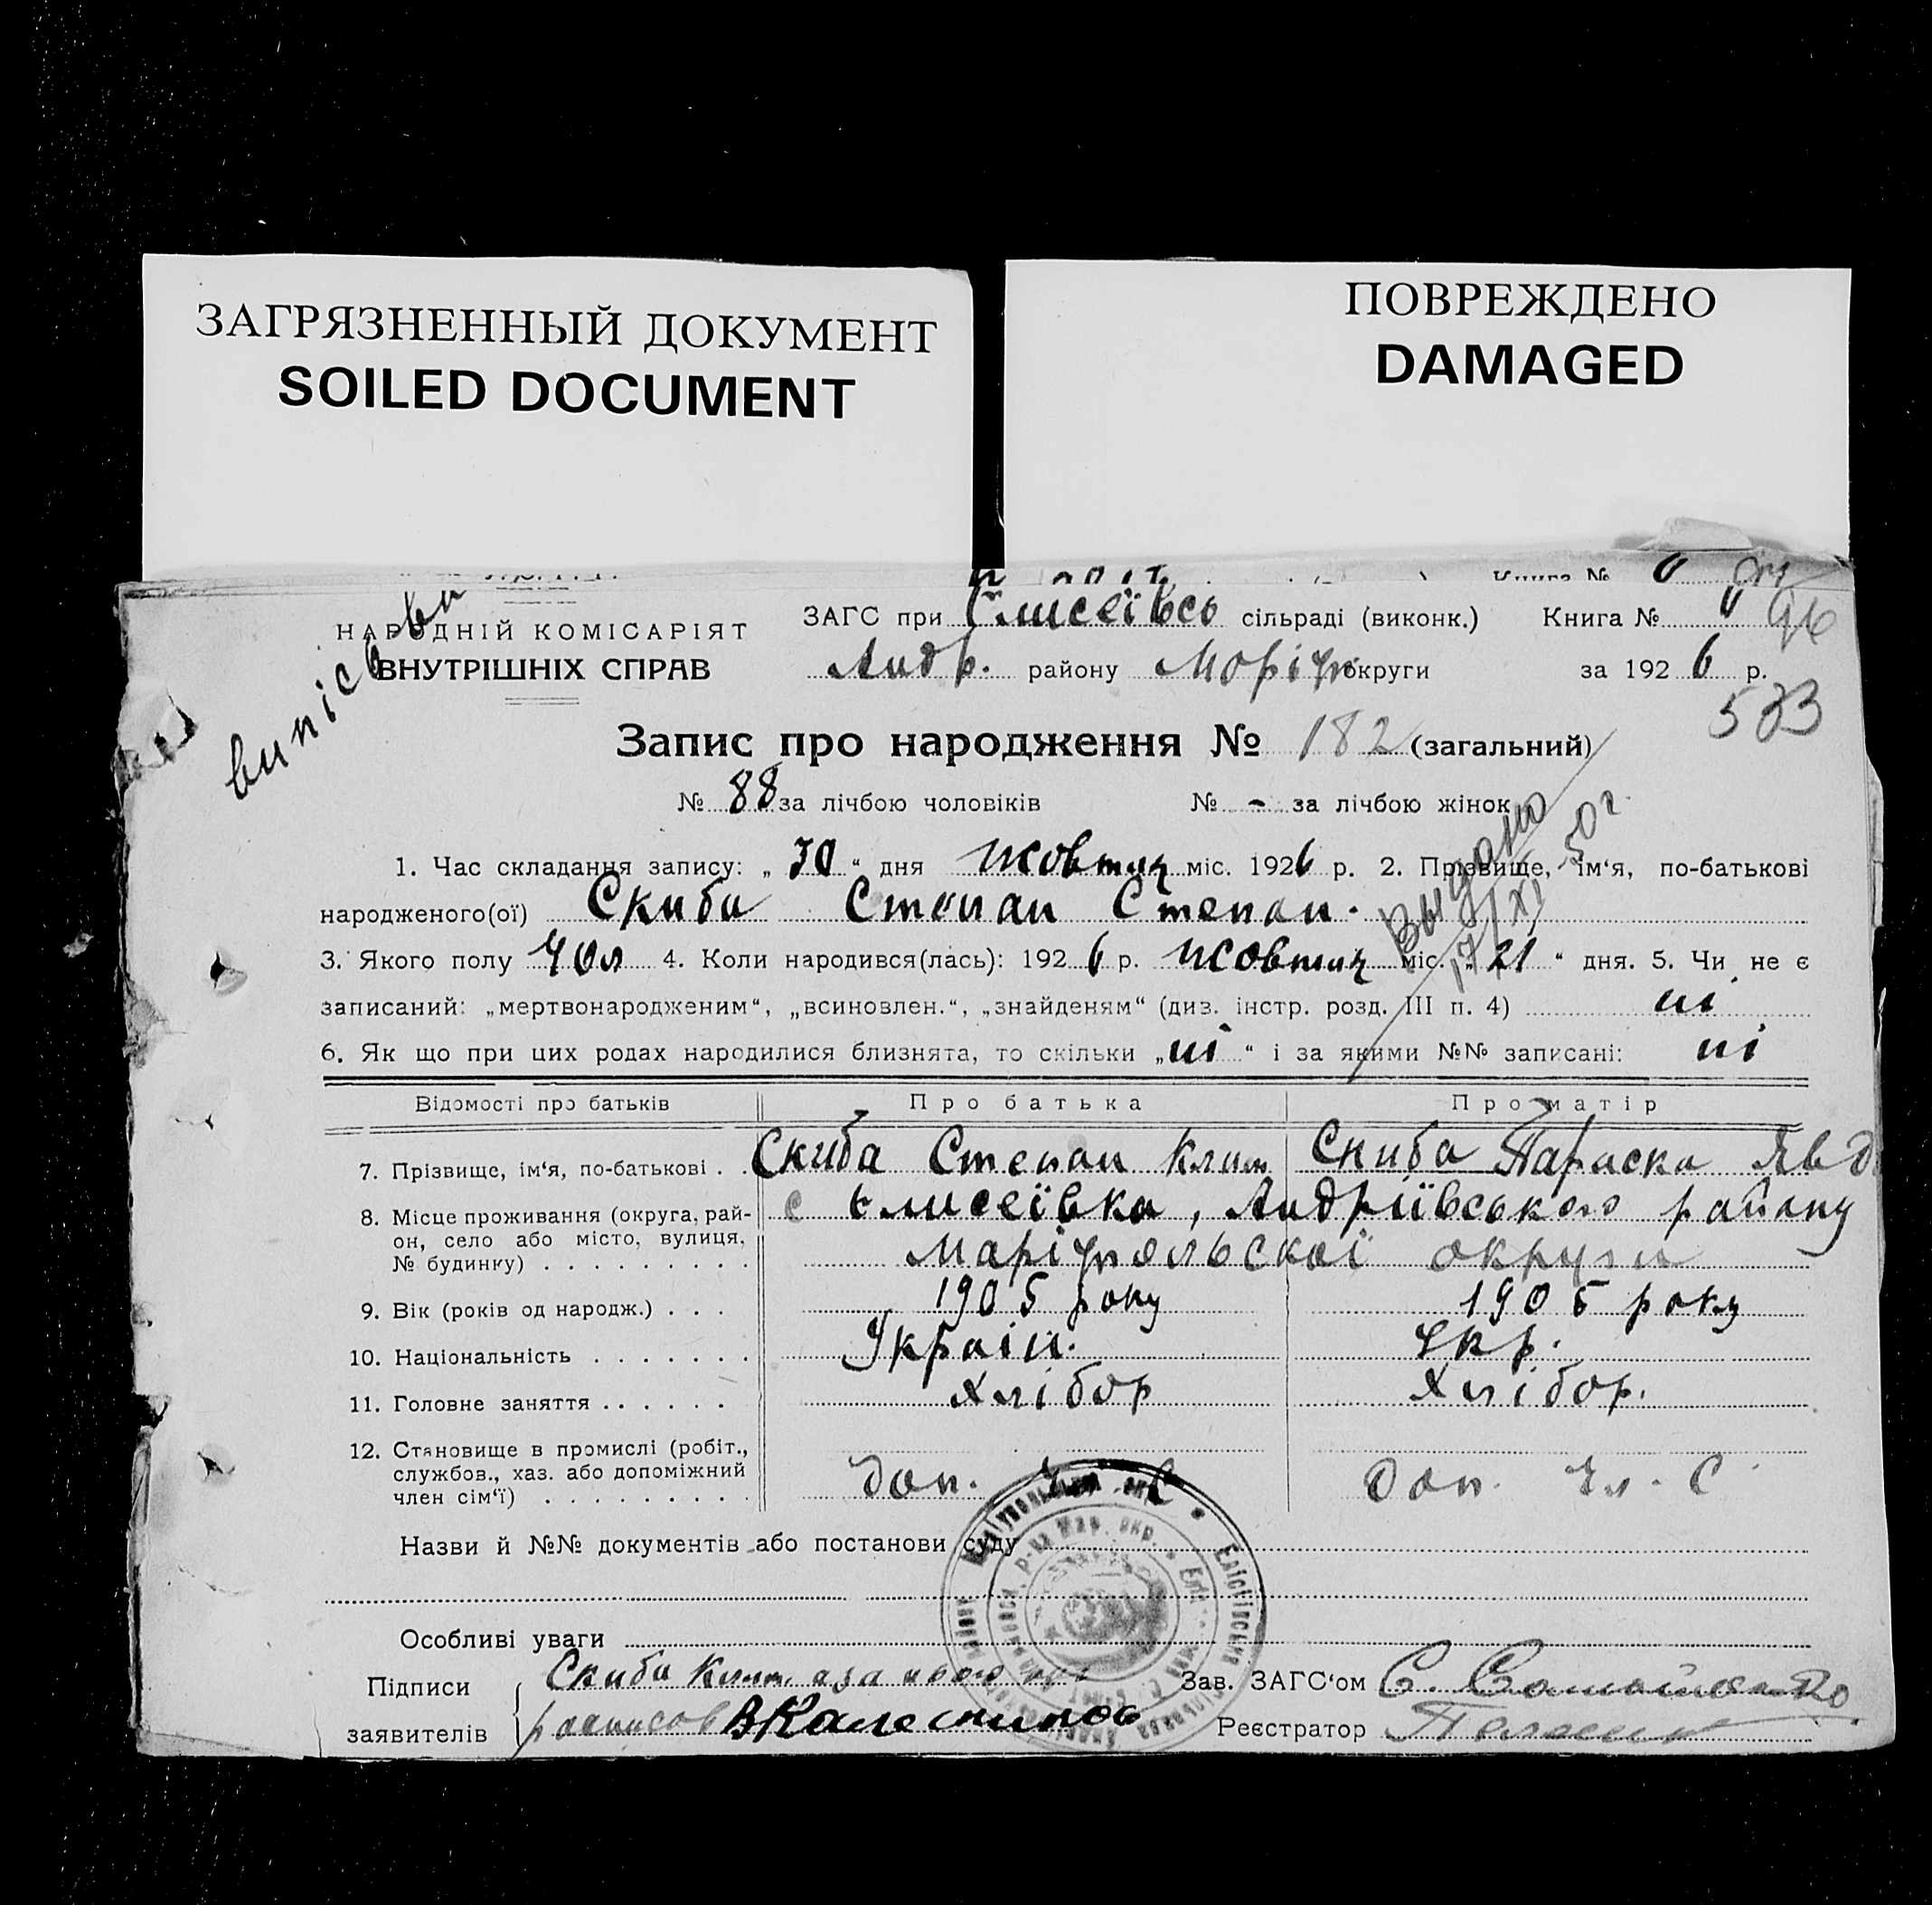 ЗАГРЯЗНЕННЫЙ ДОКУМЕНТ
SOILED DOCUMENT
ПОВРЕЖДЕНО
DAMAGED
Книга №
НАРОДНІЙ КОМІСАРІЯТ
ВНУТРІШНІХ СПРАВ
ЗАГС при Єлисеївсь сільраді (виконк.) Книга № 96
Андр. району Маріуп округи за 1926 р.
533
випісь
Запис про народження № 182 (загальний)
№ 88 за лічбою чоловіків № - за лічбою жінок
Выдано
17/XI 50 г.
1. Час складання запису: „30“ дня жовтня міс. 1926 р. 2. Прізвище, ім‘я, по-батькові
народженого(ої) Скиба Степан Степан.
3. Якого полу чол 4. Коли народився(лась): 1926 р. жовтня міс. „21“ дня. 5. Чи не є
записаний: „мертвонародженим“, „всиновлен.“, „знайденям“ (див. інстр. розд. III п. 4) ні
6. Як що при цих родах народилися близнята, то скільки „ні“ і за якими №№ записані: ні
Відомості про батьків Про батька Про матір
7. Прізвище, ім‘я, по-батькові . Скиба Степан Клим Скиба Параска Явд
8. Місце проживання (округа, рай-
он, село або місто, вулиця,
№ будинку) . . . . . . . . .
с Єлисеївка, Андріївського району
Маріупольскої округи
9. Вік (років од народж.) . . . 1905 року 1905 року
10. Національність . . . . . . . Україн. Укр.
11. Головне заняття . . . . . . Хлібор Хлібор.
12. Становище в промислі (робіт.,
службов., хаз. або допоміжний
член сім‘ї) . . . . . . . . . доп. чл. С Доп. чл. С
Назви й №№ документів або постанови суду
Особливі уваги
Підписи Скиба Клим, а за нього Зав. ЗАГС‘ом С.
заявителів Реєстратор